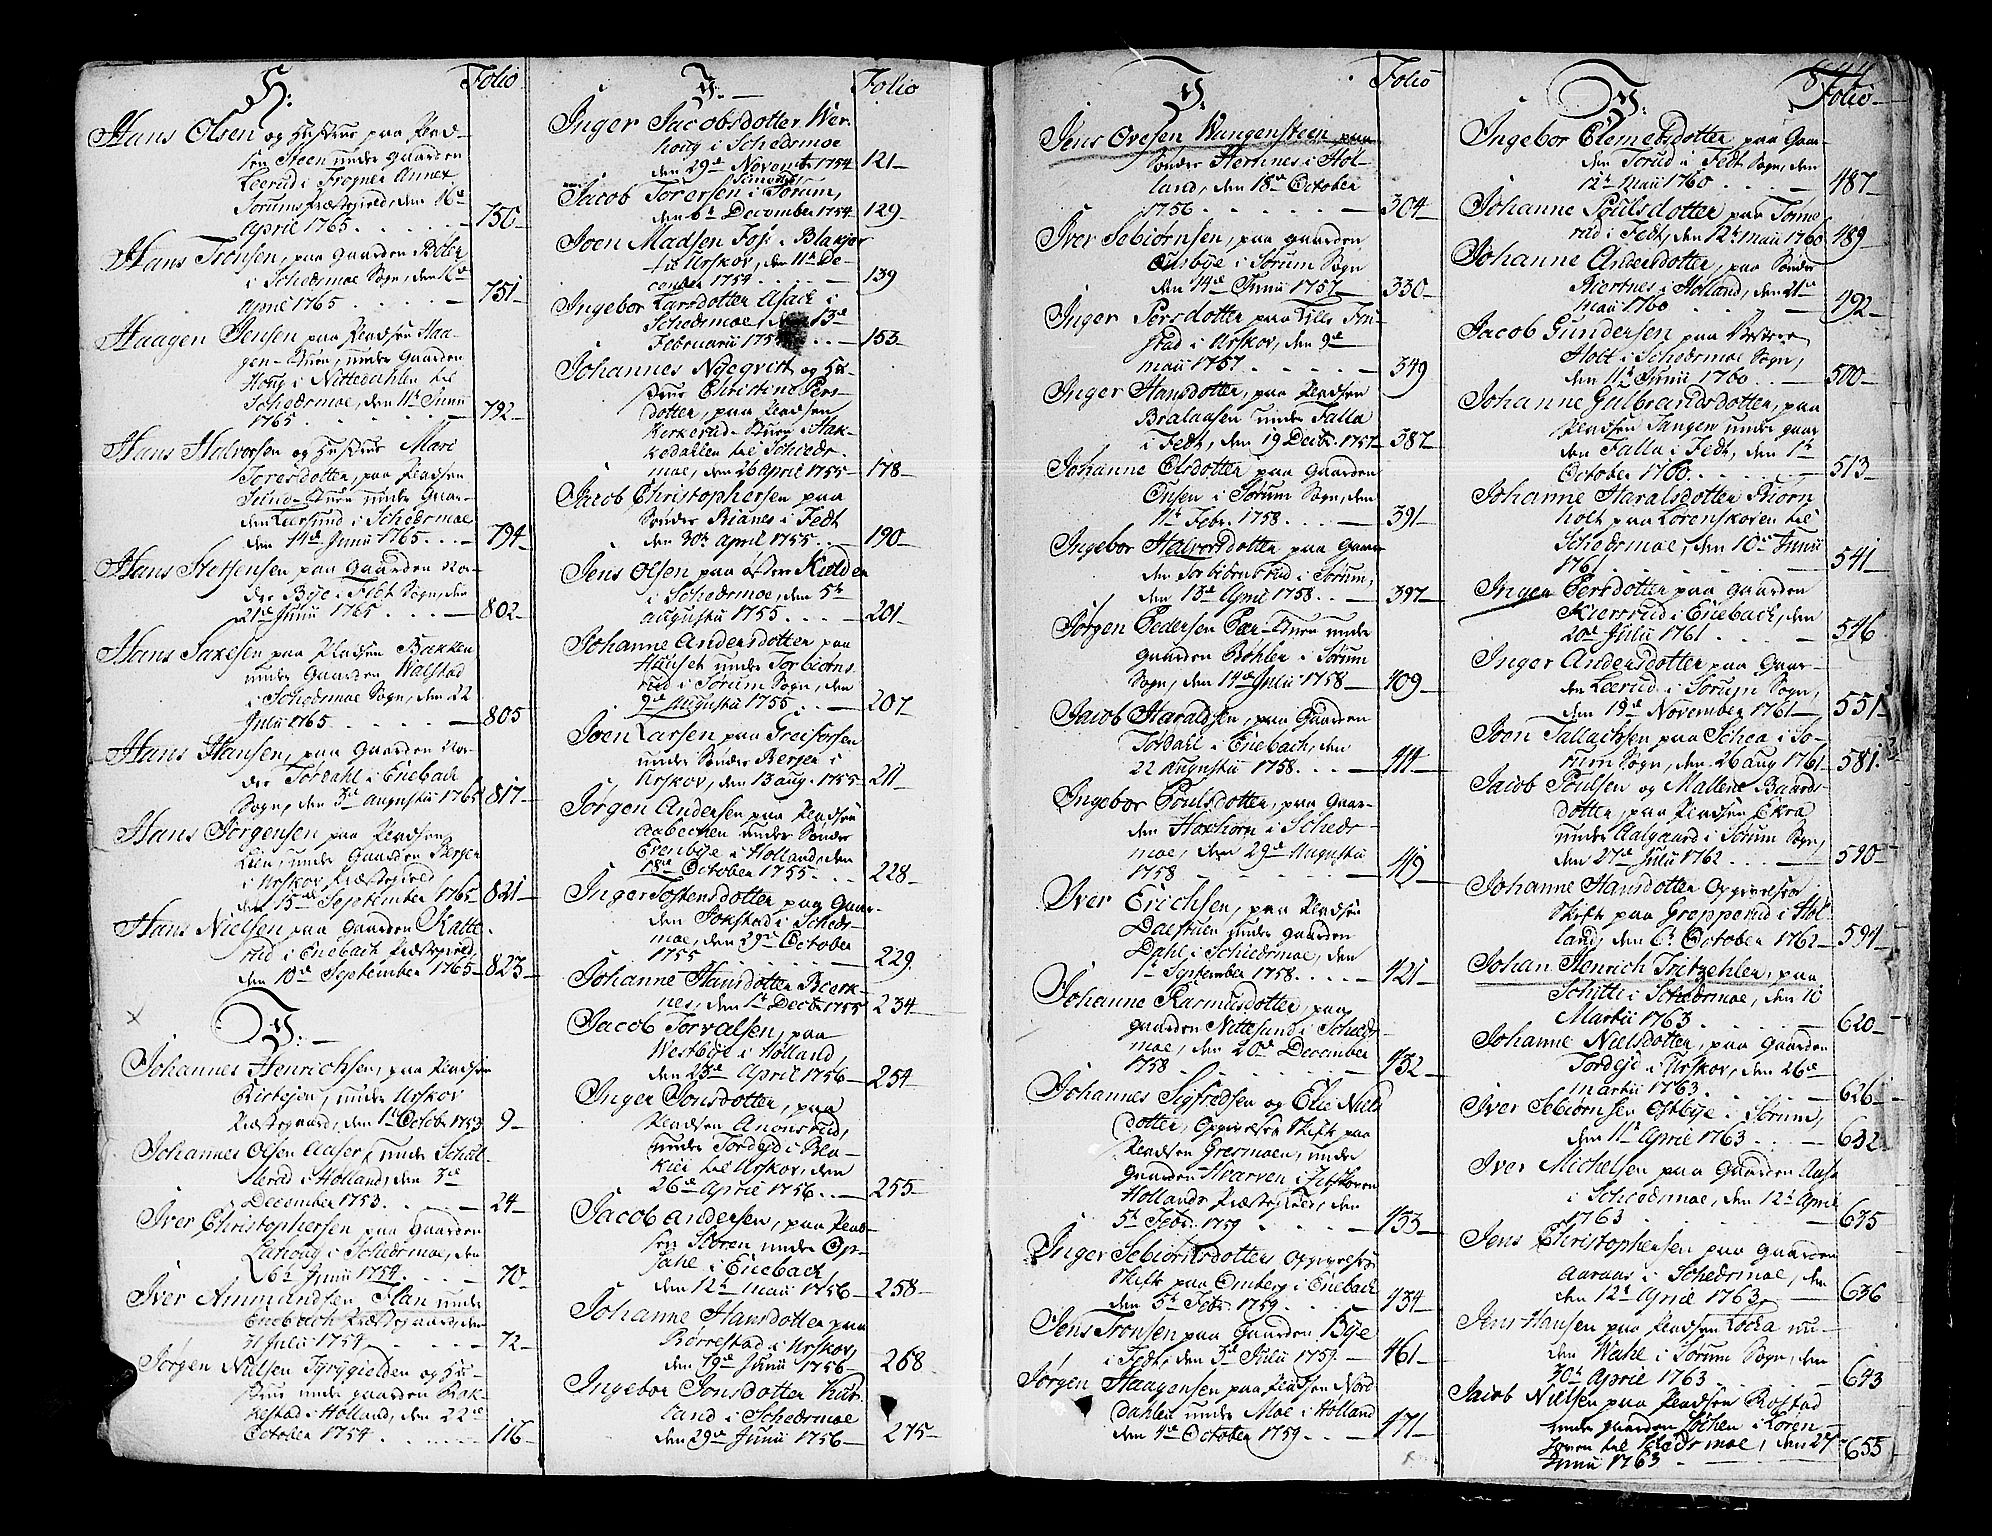 H: Folio
Hans Olsen og Hustrue paa Plad-
sen Steen under Gaarden
Leerud i Frogner Annex
Sørums Præstegield, den 16de
April 1765 750
Hans Tronsen, paa Gaarden Bøler
i Schedsmoe Sogn, den 16de
April 1765 751
Haagen Jensen paa Pladsen Haa-
gen-Stuen, under Gaarden
Houg i Nittedahlen til
Schedsmoe, den 11te Junii
1765 792
Hans Halvorsen og Hustrue Mari
Toresdotter, paa Pladsen
under Gaar-
den Leersund i Schedsmoe
den 14de Junii 1765 794
Hans Steffensen paa Gaarden Nor-
dre Bye i Fedt Sogn, den
21de Junii 1765 802
Hans Saxesen paa Pladsen Bakken
under Gaarden Walstad
i Schedsmoe Sogn, den 22
Julii 1765 805
Hans Hansen, paa Gaarden Nor-
dre Tordahl i Enebach
Sogn, den 3de Augustii 1765 817
Hans Jørgensen paa Pladsen
Lien, under Gaarden Bergen
i Urskov Præstegield
den 15de September 1765 821
Hans Nielsen paa Gaarden Katte-
rud i Enebach Præstegield,
den 18de September 1765 823
J:
Johannes Henrichsen, paa Pladsen
under Urskov
Præstegaard, den 1te Octobr 1753 9
Johannes Olsen Aaser, under Schul-
lerud i Holland, den 3de
December 1753 24
Iver Christophersen paa Gaarden
Lahoug i Schedsmoe, den
6te Junii 1754 70
Iver Ammundsen Flan under
Enebach Præstegaard, den
31 Julii 1754 72
Jørgen Nielsen Tyrigielden og Hu-
strue under Gaarden Bak-
kestad i Holland, den 22de
October 1754 116
J. Folio
Inger Jacobsdotter Wer-
houg i Schedsmoe
den 29de Novembr 1754 121
Jacob Torersen Simonst: i Sørum,
den 6te December 1754 129
Joen Madsen Foss i Blakjer
til Urskov, den 11te De-
cember 1754 139
Ingebor Larsdotter Asack i
Schedsmoe, den 13de
Februarii 1755 153
Johannes Nyeqvist og Hu-
strue Christine Pers-
dotter, paa Pladsen
Kirkerud-Stuen i Hak-
kedallen til Scheds-
moe, den 26 April 1755 178
Jacob Christophersen paa
Søndre Rianes i Fedt
den 30te April 1755 190
Jens Olsen paa østre Kielden
i Schedsmoe, den 5te
Augustii 1755 201
Johanne Andersdotter paa
Huuset under Torbiørns
rud i Sørum Sogn, den
9de Augustii 1755 207
Joen Larsen paa Freisersen
under Søndre Bergen i
Urskov, den 13 Aug: 1755 211
Jørgen Andersen paa Pladsen
Aabechen under Søndre
Evenbye i Holland, den
18de October 1755 228
Inger Tostensdotter paa Gaar-
den Sokstad i Scheds-
moe, den 29de October
1755 229
Johanne Hansdotter Bierk-
nes, den 1te Decbr 1755 234
Jacob Torvalsen, paa
Westbye i Holland,
den 23de April 1756 254
Inger Jonsdotter, paa
Pladsen Anonsrud,
under Tordejd i Bla-
kier til Urskov, den
26de April 1756 255
Jacob Andersen, paa Plad-
sen Støren under Op-
sahl i Enebach,
den 12te Maii 1756 258
Johanne Hansdotter paa
Børrestad i Urskov,
den 19de Junii 1756 268
Ingebor Jonsdotter Hur-
land i Schedsmoe
den 29de Junii 1756 275
J. Folio
Jens Ovesen Wangensteen paa
Søndre Hernnes i Hol-
land, den 18de October
1756 304
Iver Sebiørnsen, paa Gaarden
Ousbye i Sørum Sogn
den 14de Junii 1757 330
Inger Persdotter paa Lille Fin-
stad i Urskov, den 9de
Maii 1757 349
Inger Hansdotter, paa Pladsen
Bralaasen under Falla
i Fedt, den 19 Decbr. 1757 387
Johanne Elsdotter paa Gaarden
Ensen i Sørum Sogn, den
11te Febr. 1758 391
Ingebor Halvorsdotter paa Gaar
den Torbiørnsrud i Sørum,
den 18de April 1758 397
Jørgen Pedersen Per-Stuen under
Gaarden Bøhler i Sørum
Sogn, den 14de Julii 1758 409
Jacob Haraldsen, paa Gaarden
Tordahl i Enebach, den
22 Augustii 1758 414
Ingebor Poulsdotter, paa Gaar-
den Hoxhorn i Scheds-
moe, den 29de Augustii
1758 419
Iver Erichsen, paa Pladsen
Daestuen under Gaarden
Dahl i Schedsmoe, den
1te September 1758 421
Johanne Rasmusdotter, paa
Gaarden Nittesund i Scheds-
moe, den 20de December
1758 432
Johannes Sigfredsen og Elie Niels
dotter, Opgivelses Skifte paa
Pladsen Gresmoen, under
Gaarden Kvarven i
Hollands Præstegield, den
5te Febr. 1759 433
Inger Sebiørnsdotter Opgivelses
Skifte paa Emberg i Enebach
den 5te Febr. 1759 434
Jens Tronsen paa Gaarden Bye
i Fedt, den 3de Julii 1759 461
Jørgen Haagensen paa Pladsen Nord-
dahlen under Moe i Holland
den 4de October 1759 471
J. Folio
Ingebor Clemetsdotter paa Gaar-
den Torud i Fedt Sogn, den
12te Maii 1760 487
Johanne Poulsdotter paa Tomte
rud i Fedt, den 12te Maii 1760 489
Johanne Andersdotter, paa Søndre
Hernnes i Holland, den 21de
Maii 1760 492
Jacob Gundersen paa Vestre
Holt i Schedsmoe Sogn,
den 11te Junii 1760 500
Johanne Gulbrandsdotter, paa
Pladsen Tangen under Gaar
den Falla i Fedt, den 1te
October 1760 513
Johanne Haralsdotter Biørn
holt paa Lorenskoven til
Schedsmoe, den 10de Junii
1761 541
Inger Persdotter paa Gaarden
Kiersrud i Enebach, den
20de Julii 1761 546
Inger Andersdotter paa Gaar-
den Leerud i Sørum Sogn,
den 19de November 1761 551
Joen Tallachsen paa Schea i Sø-
rum Sogn, den 26 Aug 1761 581
Jacob Poulsen og Mallene Baards
dotter, paa Pladsen Ekra
under Aalgaard i Sørum Sogn,
den 27de Julii 1762 590
Johanne Hansdotter Opgivelses
Skifte paa Grepperud i Hol-
land, den 6te October 1762 594
Johan Henrich Tritzehler, paa
Schitti i Schedsmoe, den 10
Martii 1763 620
Johanne Nielsdotter, paa Gaarden
Tordejd i Urskov, den 26de
Martii 1763 626
Iver Sebiørnsen Ostbye i Sørum,
den 11te April 1763 632
Iver Michelsen paa Gaarden Aase
i Schedsmoe, den 12te April
1763 635
Jens Christophersen paa Gaarden
Aaraas i Schedsmoe, den
den 12te April 1763 636
Jens Hansen paa Pladsen Locka un-
den Wahl i Sørum Sogn, den
30te April 1763 643
Jacob Nielsen paa Pladsen Rostad
under Gaarden Løchen i Loren-
skoven til Schedsmoe, den 27
Junii 1763 655